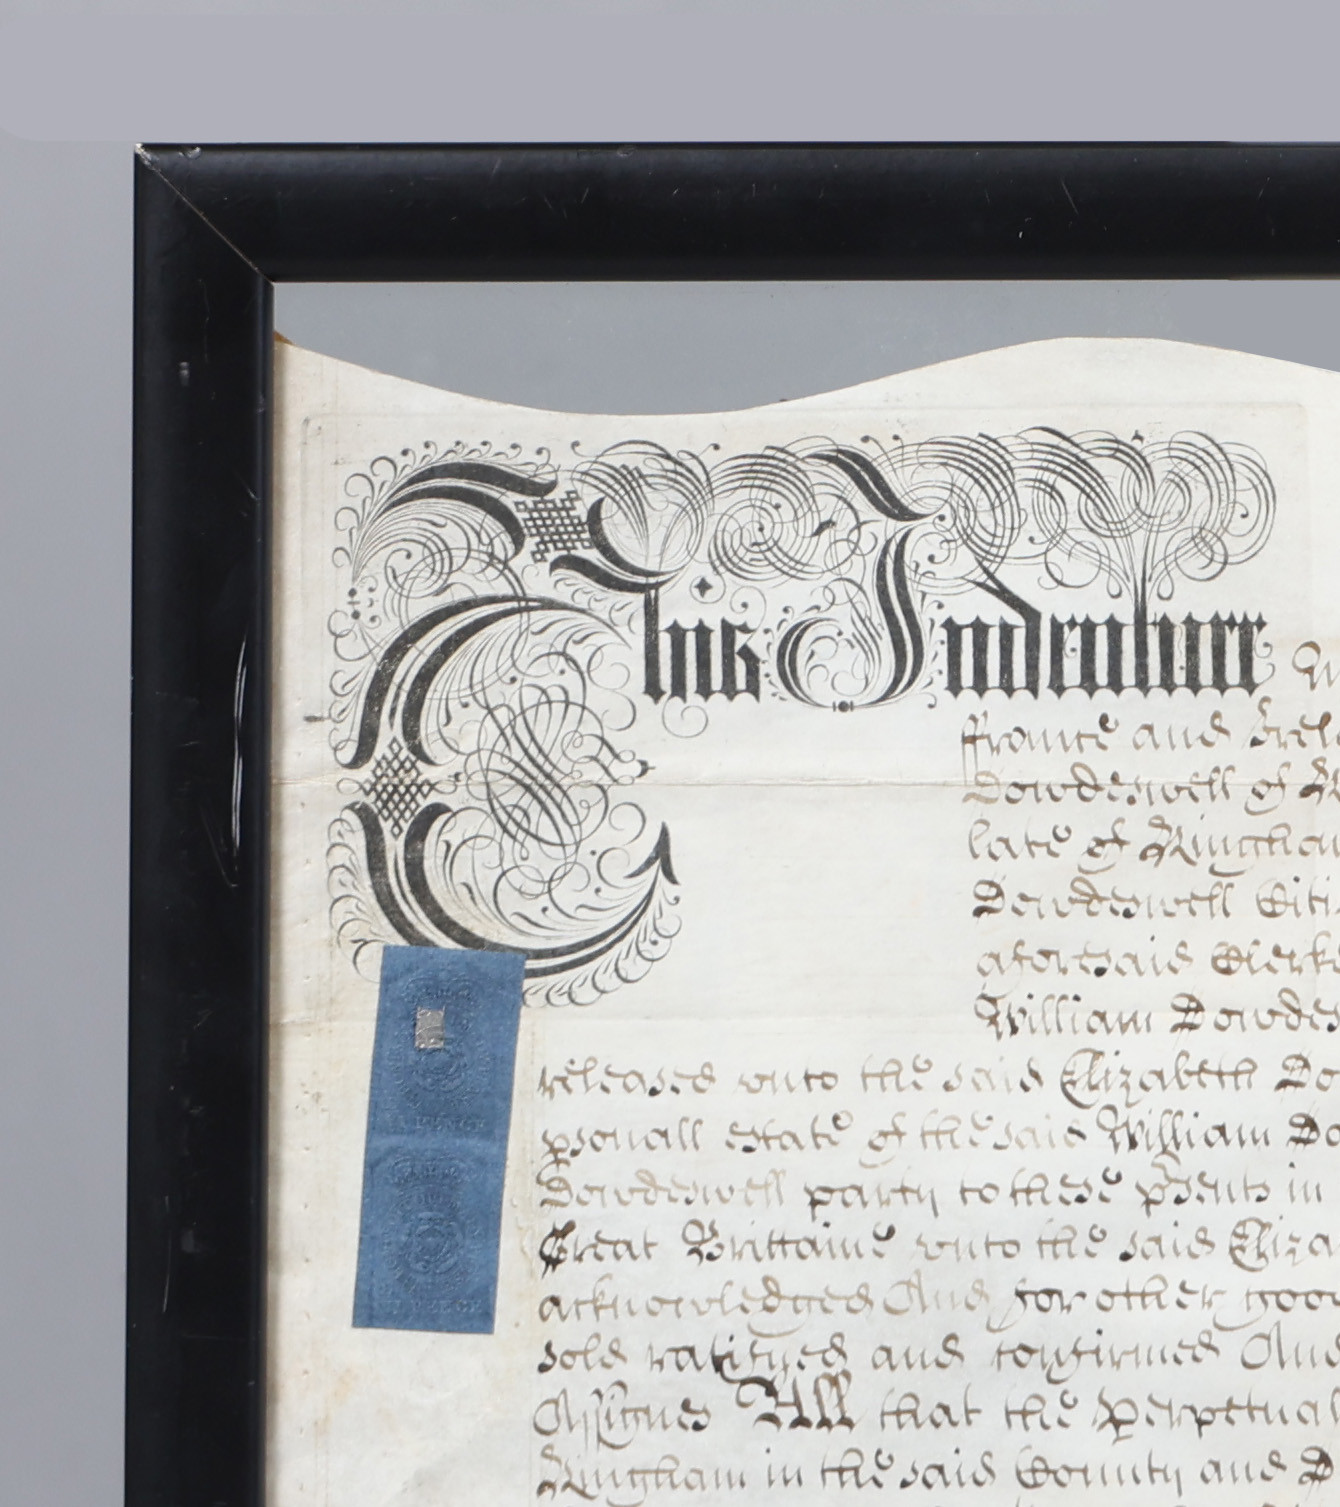 This Indenture
ffrance and Irel
Dowdeswell of
late of Kingham
Dowdeswell Citi
aforesaid Clerke
William Dowdes
released unto the said Elizabeth Do
psonall estate of the said William Do
Dowdeswell party to these psents in
Great Brittaine unto the said Eliza
acknowledged And for other good
sold ratifyed and confirmed And
Assignes All that the perpetual
Kingham in the said County and
PENCE
PENCE